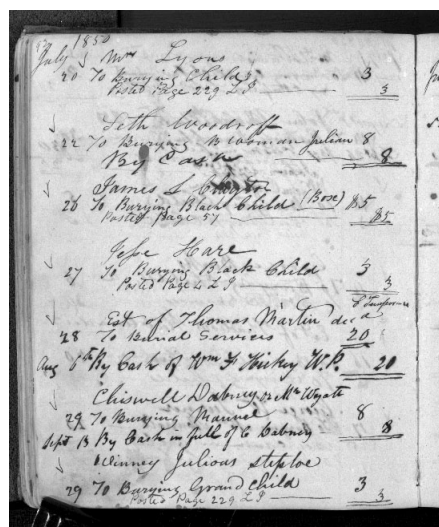 July 1850 Mrs Lyons
20 To Burying Child 3
Posted Page 229 L P 3
Seth Woodroff
22 To Burying B Woman Julian 8
By Cash 8
James S
26 To Burying Black Child (Bose) 85
Posted Page 57 85
Jesse Hare
27 To Burying Black Child 3
Posted Page L P 3
Est of Thomas Martin decd
28 To Burial Services 20
Aug 6th By Cash of Wm Hickey W.P. 20
Chiswell Dabney or Mr Wyatt
29 To Burying Manuel 8
Sept 13 By Cash in full of C Dabney 8
Julious steptoe
29 To Burying Grand Child 3
Posted Page 229 L P 3